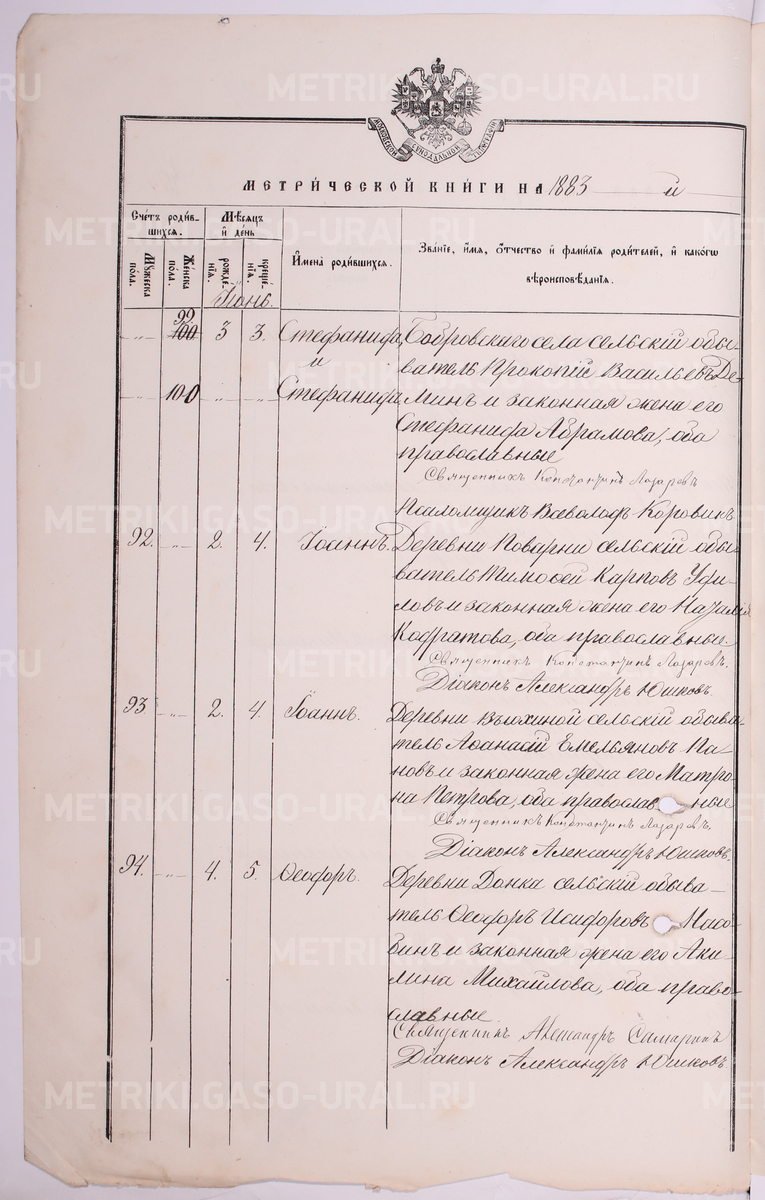 МОСКОВСКОЙ СИНОДАЛЬНОЙ ТИПОГРАФІИ
МЕТРИ́ЧЕСКОЙ КНИ́ГИ НА 1883 й
Сче́тъ роди́в-
шихся.
Мѣ́сяцъ
и҆ де́нь
И҆мена̀ роди́вшихся.
Зва́ніе, и҆́мя, ѻ҆́тчество и҆ фами́лія роди́телей, и҆ како́гѡ
вѣроисповѣ́данія.
Мꙋ́жеска
пола.
Же́нска
пола.
рожде́-
нія.
креще́-
нія.
Іюнь.
99
-"- 100 3 3. Стефанида, Бобровскаго села сельскій обы-
и ватель Прокопій Васильевъ Де-
-"- 100 -"- -"- Стефанида минъ и законная жена его
Стефанида Абрамова, оба
православные
Священникъ Константинъ Лазаревъ
Псаломщикъ Всеволодъ Коровинъ
92. -"- 2. 4. Іоаннъ. Деревни Поварни сельскій обы-
ватель Тимоѳей Карповъ
ловъ и законная жена его Наталія
Кодратова, оба православные.
Священникъ Константинъ Лазаревъ.
Діаконъ Александръ Юшковъ.
93 -"- 2. 4. Іоаннъ. Деревни Вьюхиной сельскій обыва-
тель Аѳанасій Емельяновъ Па-
новъ и законная жена его Матро-
на Петрова, оба православные
Священникъ Константинъ Лазаревъ.
Діаконъ Александръ Юшковъ.
94. -"- 4. 5. Ѳеодоръ. Деревни Донка сельскій обыва-
тель Ѳеодоръ Исидоровъ
бинъ и законная жена его Аки-
лина Михайлова, оба право-
славные.
Священникъ Александръ Самаринъ
Діаконъ Александръ Юшковъ.
METRIKI.GASO-URAL.RU